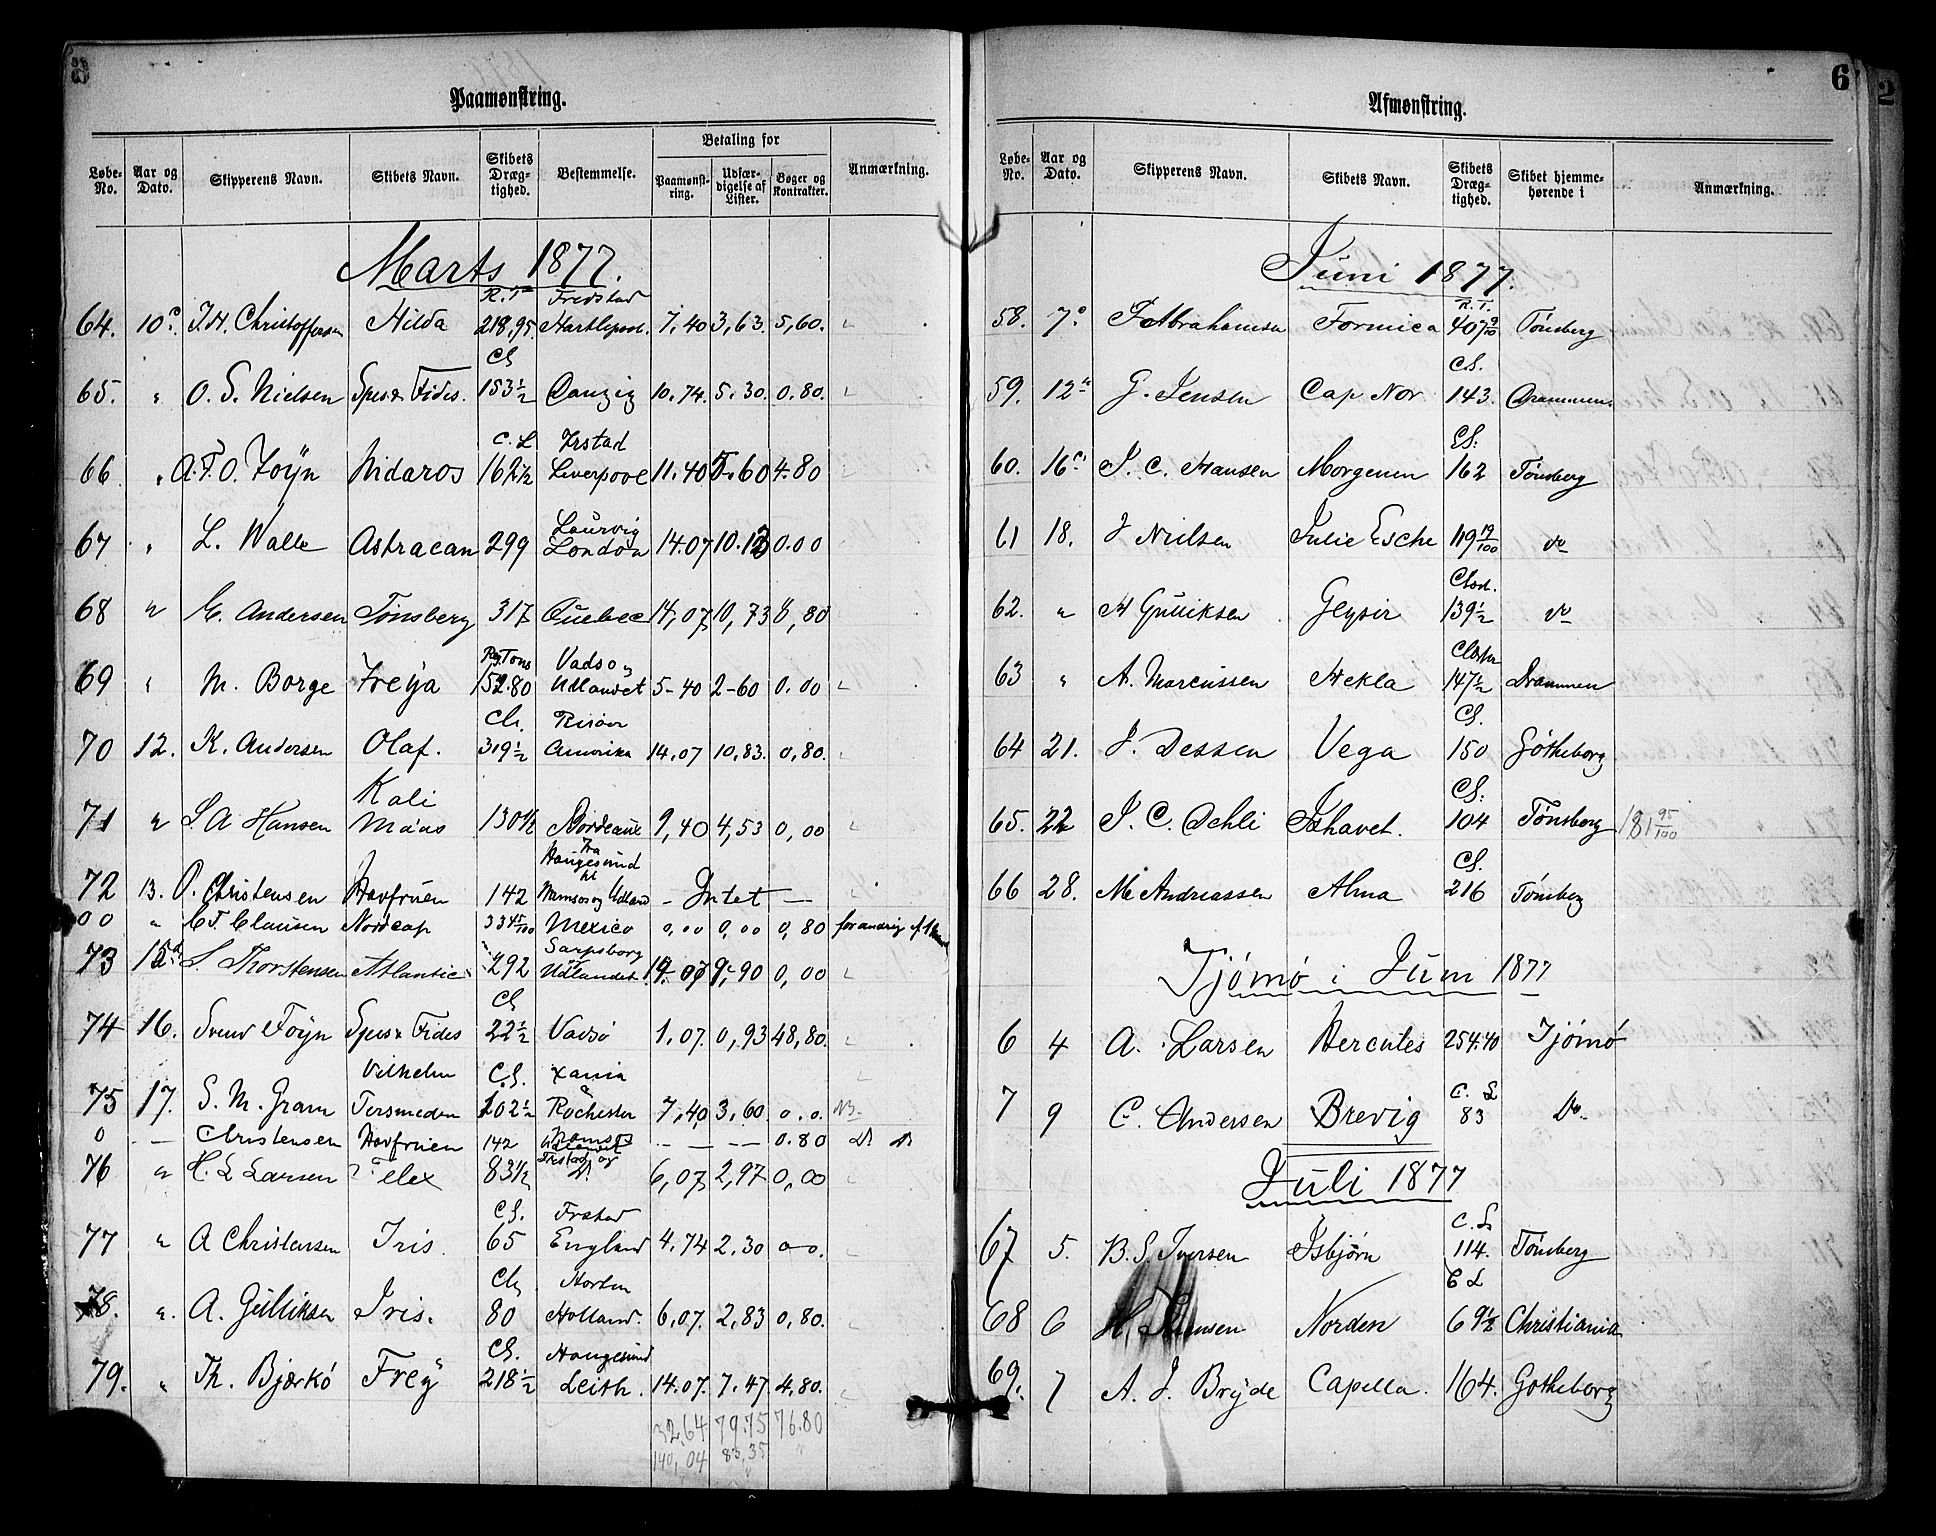 Paamønstring.
Løbe-No. Aar og Dato. Skipperens Navn. Skibets Navn. Skibets Dræg-tighed. Bestemmelse. Betaling for Paamønst-ring. Udfær-digelse af Lister. Bøger og Kontrakter. Anmærkning.
Marts 1877.
R. T Fredstad
64. 10 J. H. Christoffersen Hilda 218,95. Hartlepool. 7,40 3,63. 5,60.
Cl
65. " O. S. Nielsen Spes & Fides. 153 1/2 Danzig 10.74. 5.30. 0.80.
C. L
66 " A. F. O. Foÿn Nidaros 162 1/2 Liverpool 11.40 5.60 4.80
Laurvig
67 " L. Walle Astracan 299 London 14.07 10.13 0.00
68 " E. Andersen Tönsberg 317 Quebec 14,07 10,73 0,80
Reg Tons Vadso og
69 " M. Borge Freÿa 152.80 Udlandet 5-40 2-60 0.00
Cl. Risöer
70 12. K. Andersen Olaf. 319 1/2 Amerika 14,07 10,83. 0,80.
Kali
71 " S. A Hansen Maas 130 1/2 Bordeaux 9,40 4,53 0,00
fra Haugesund
72 13. O. Christensen Havfruen 142 Namsos og Udland - Intet -
00 " C. F. Clausen Nordcap 334 5/100 Mexico 0,00 0,00 0,80
Sarpsborg
73 15 S. Thorstensen Atlantic 292 Udlandet. 14.07 9,90 0,00
Cl
74 16. Svend Foÿn Spes & Fides 22 1/2 Vadsö 1,07. 0,93 48,80.
Vilhelm C. L. Xania
75 17. S. M. Gram Tersmeden 102 1/2 Rochester 7,40 3,60 0.0.
0 — Christensen Havfruen 142 Namsos Udlandet — — 0.80
Frstad og
76 " H. L Larsen Felex 83 1/2 6,07 2,97 0,00
C. L. Frstad
77 " A Christensen Iris 65 England 4.74 2.30 0-0.
Cl Horten
78. " A. Gulliksen Iris. 80 Holland. 6,07. 2,83 0,80.
Cl. Haugesund
79. " Th. Bjerkö Freÿ 218 1/2 Leith. 14.07. 7.47 4,80.
32,64 79.75 76.80
140,04 83,35
6 2
Afmønstring.
Løbe-No. Aar og Dato. Skipperens Navn. Skibets Navn. Skibets Dræg-tighed. Skibet hjemme-hørende i Anmærkning.
Juni 1877.
R. T.
58. 7 Abrahamsen Formica 407 9/10 Tönsberg
Cl.
59. 12 G. Jensen Cap Nor 143. Drammen.
Cl.
60. 16 J. C. Hansen Morgenen 162 Tönsberg
61 18. J Nielsen Julie Esche 119 19/100 do
62. " H Gulliksen Geysir 139 1/2 do
63 " A. Marcussen Hekla 147 1/2 Drammen
Cl.
64 21. J. Dessen Vega 150 Götheborg
Cl.
65. 22 J. C. Dehli Ishavet. 104 Tönsberg 181 95/100
Cl.
66 28. M. Andreassen Alma 216 Tönsberg
Tjömö i Juni 1877
6 4 A. Larsen Hercules 254.40 Tjömö
C. L
7 9 C. Andersen Brevig 83 Do
Juli 1877
C. L
67 5. B. S. Iversen Isbjörn 114. Tönsberg
C L
68 6 H. Hansen Norden 69 1/2 Christiania
69. 7 A. J. Brÿde Capella. 164. Gotheborg